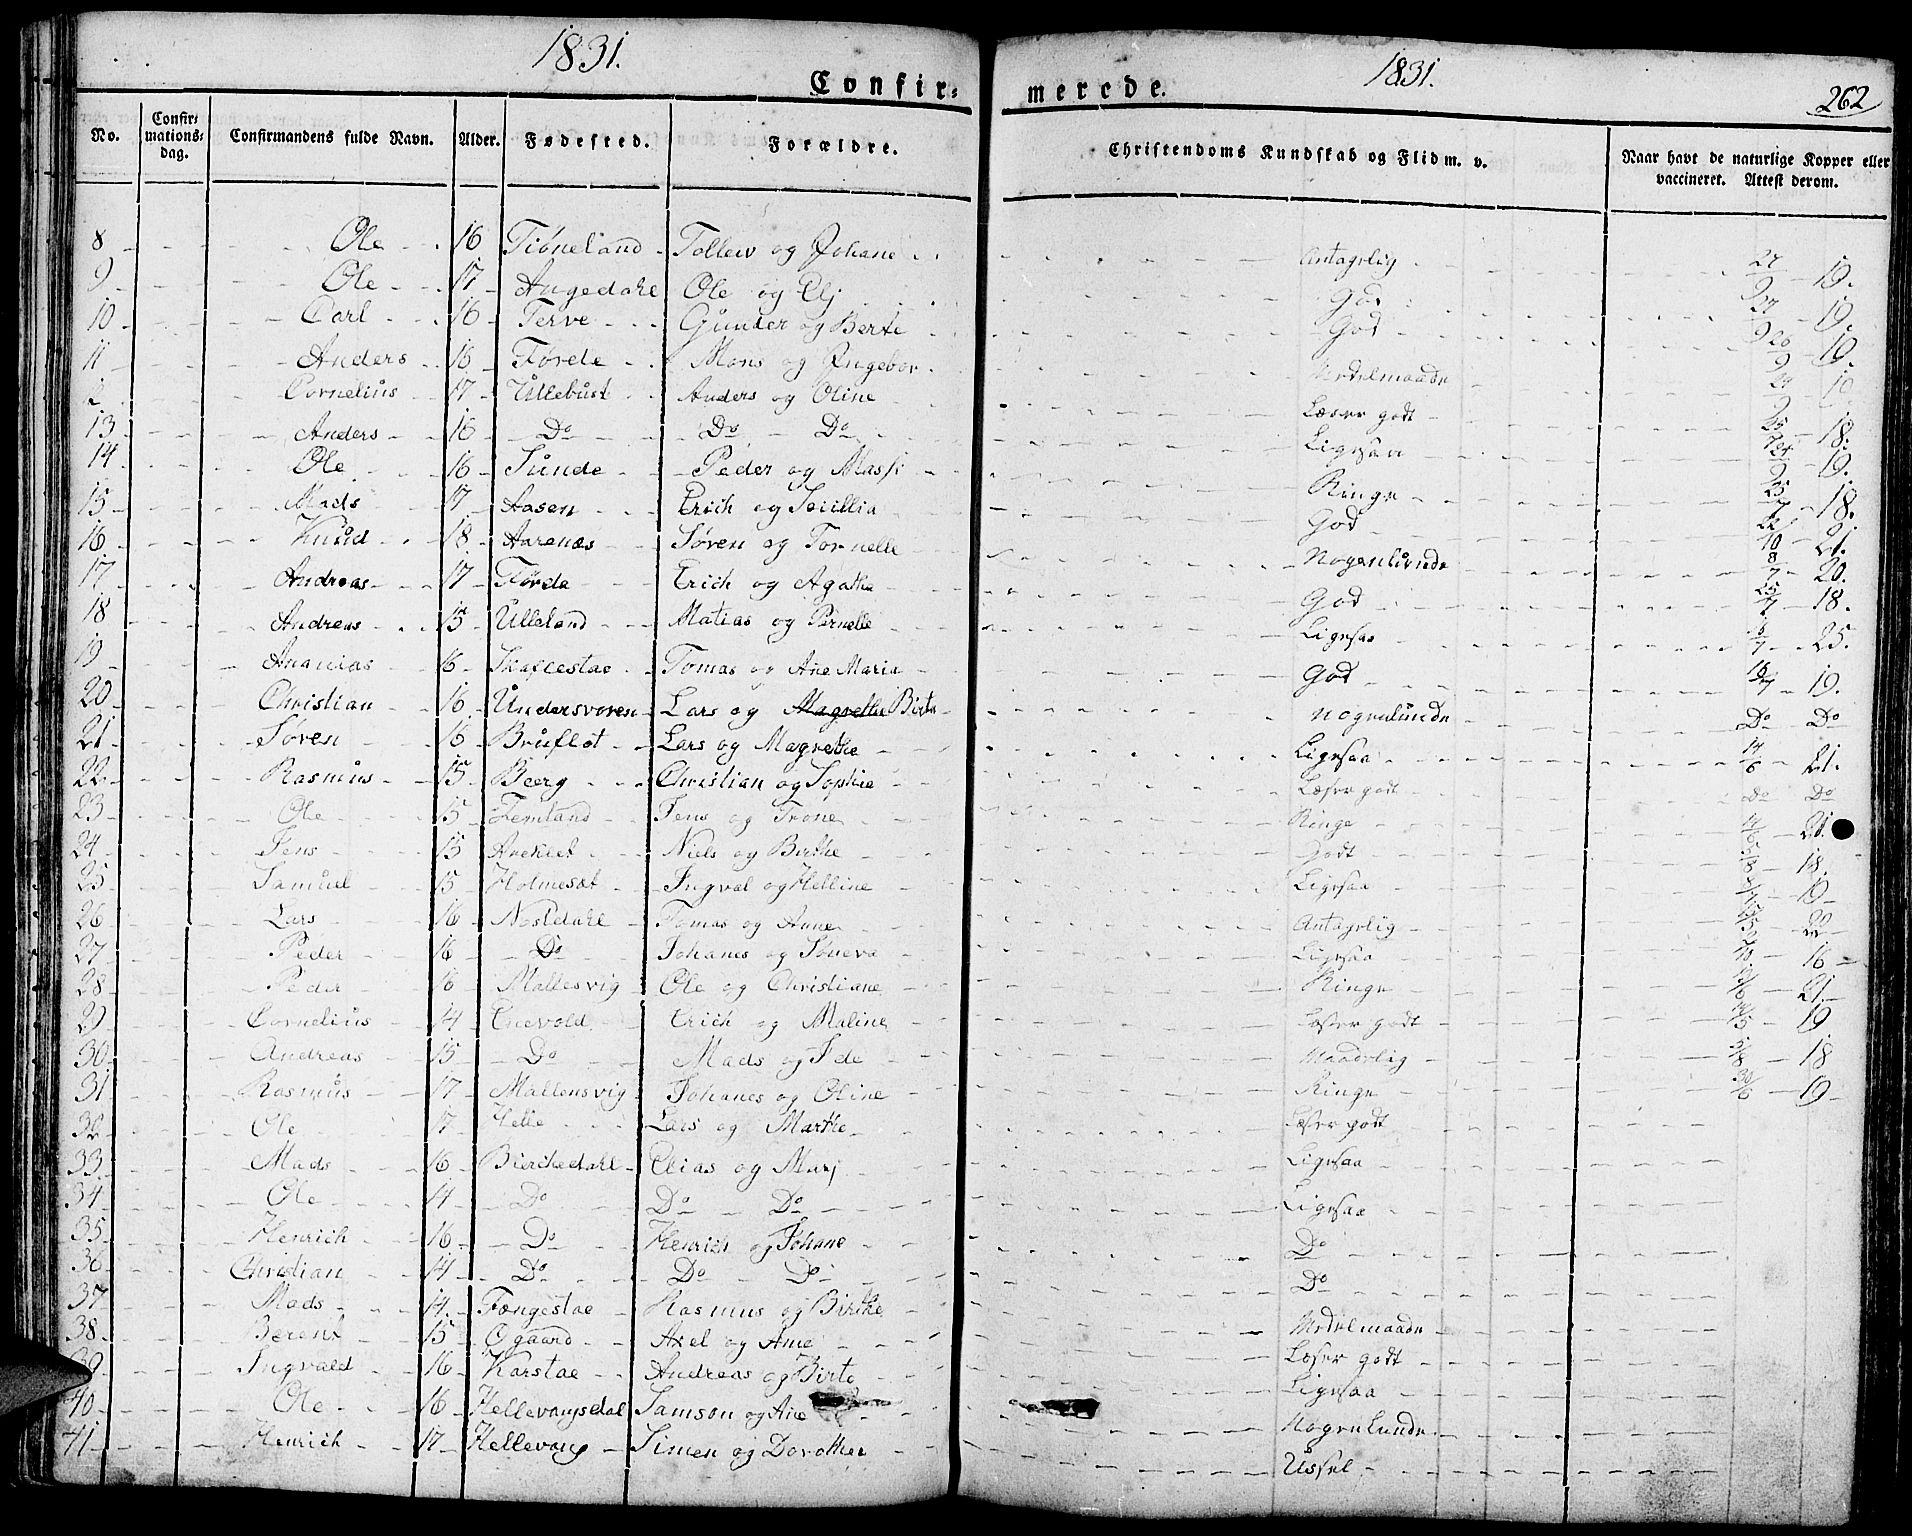 1831.
1831.
262
Confir=
merede.
No.
Confir=
mations=
dag.
Confirmandens fulde Navn.
Alder.
Fødested.
Forældre.
Christendoms Kundskab og Flid m. v.
Naar havt de naturlige Kopper eller
vaccineret. Attest derom.
8 Ole 16 Tiøneland Tollew og Johane Antagelig 27/9 19.
9 Ole 17 Angedahl Ole og Elj God 27/9 19.
10 Carl 16 Terve Gunder og Berte God 19.
11 Anders 16 Førde Mons og Ingebor Medelmaade
Cornelius 17 Ullebust Anders og Oline Læser godt
13 Anders 16 Do Do Do Ligesaa 18.
14 Ole 16 Sunde Peder og Ringe 19.
15 Mads 17 Aasen Erich og God 18.
16 Knud 18 Aarenæs Søren og Nogenlunde 21.
17 Andreas 17 Førde Erich og Agathe God 20.
18 Andreas 15 Ulleland Matias og Pernelle Ligesaa 18.
19 Ananias 16 Tomas og Ane Maria God 25.
20 Christian 16 Undersvoren Lars og Magrethe Birte Nogenlunde 19.
21 Søren 16 Bruflot Lars og Magrethe Ligesaa Do Do
22 Rasmus 15 Berg Christian og Sophie Læser godt 14/6 21.
23 Ole 15 Jens og Trone Ringe Do Do
24 Jens 15 Niels og Birthe Godt 14/6 21
25 Samuel 15 Holmesæt Ingval og Helline Ligesaa 18.
26 Lars 16 Nostdahl Tomas og Anne Antagelig 19
27 Peder 16 Do Johanes og Søneva Ligesaa 22
28 Peder 16 Mallesvig Ole og Christiane Ringe 16
29 Cornelius 14 Enevold Erich og Maline Læser godt 21
30 Andreas 15 Do Mads og Ide Maadelig 19
31 Rasmus 17 Mallensvig Johanes og Oline Ringe 18
32 Ole 17 Helle Lars og Marthe Læser godt 30/6 19
33 Mads 16 Birchedahl Elias og Marj Ligesaa
34 Ole 14 Do Do Do Ligesaa
35 Henrich 16 Do Henrich og Johane Do
36 Christian 14 Do Do Do Do
37 Mads 14. Fongestae Rasmus og Birthe Medelmaade
38. Berent 15 Ogaard Axel og Ane Læser godt
39 Ingvald 16 Karstae Andreas og Birte Ligesaa
40 Ole 16 Hellevangsdal Samson og Ane Nogenlunde
41 Henrich 17 Hellevang Simen og Dorothee Ussel